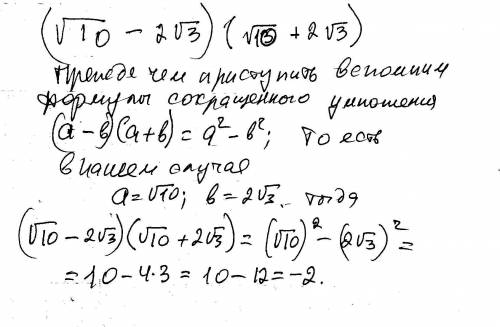 (√10 - 2√3)(√10 + 2√3)
Прежде чем приступить вспомним
формулы сокращённого умножения
(а - в)(а + в) = а² - в²; то есть
в нашем случае
а = √10; в = 2√3. тогда
(√10 - 2√3)(√10 + 2√3) = (√10)² - (2√3)² =
= 10 - 4·3 = 10 - 12 = -2.